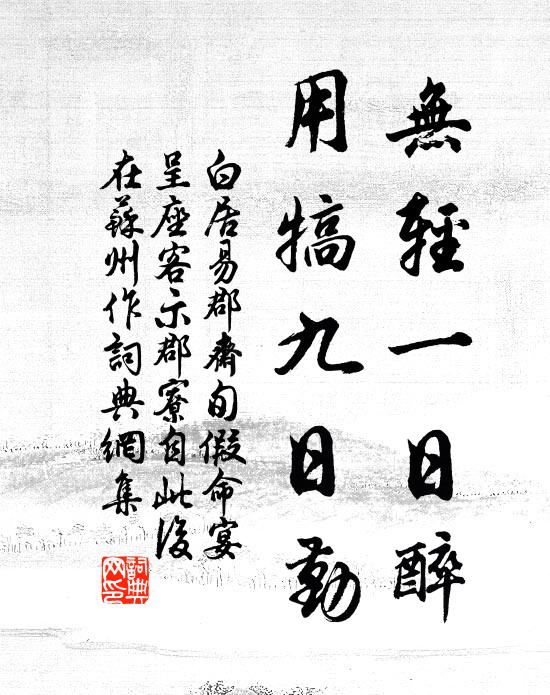 無輕一日醉
用犒九日勤
白居易郡齋旬假命宴
呈座客示郡寮自此後
在蘇州作詞典網集
詞典
网印